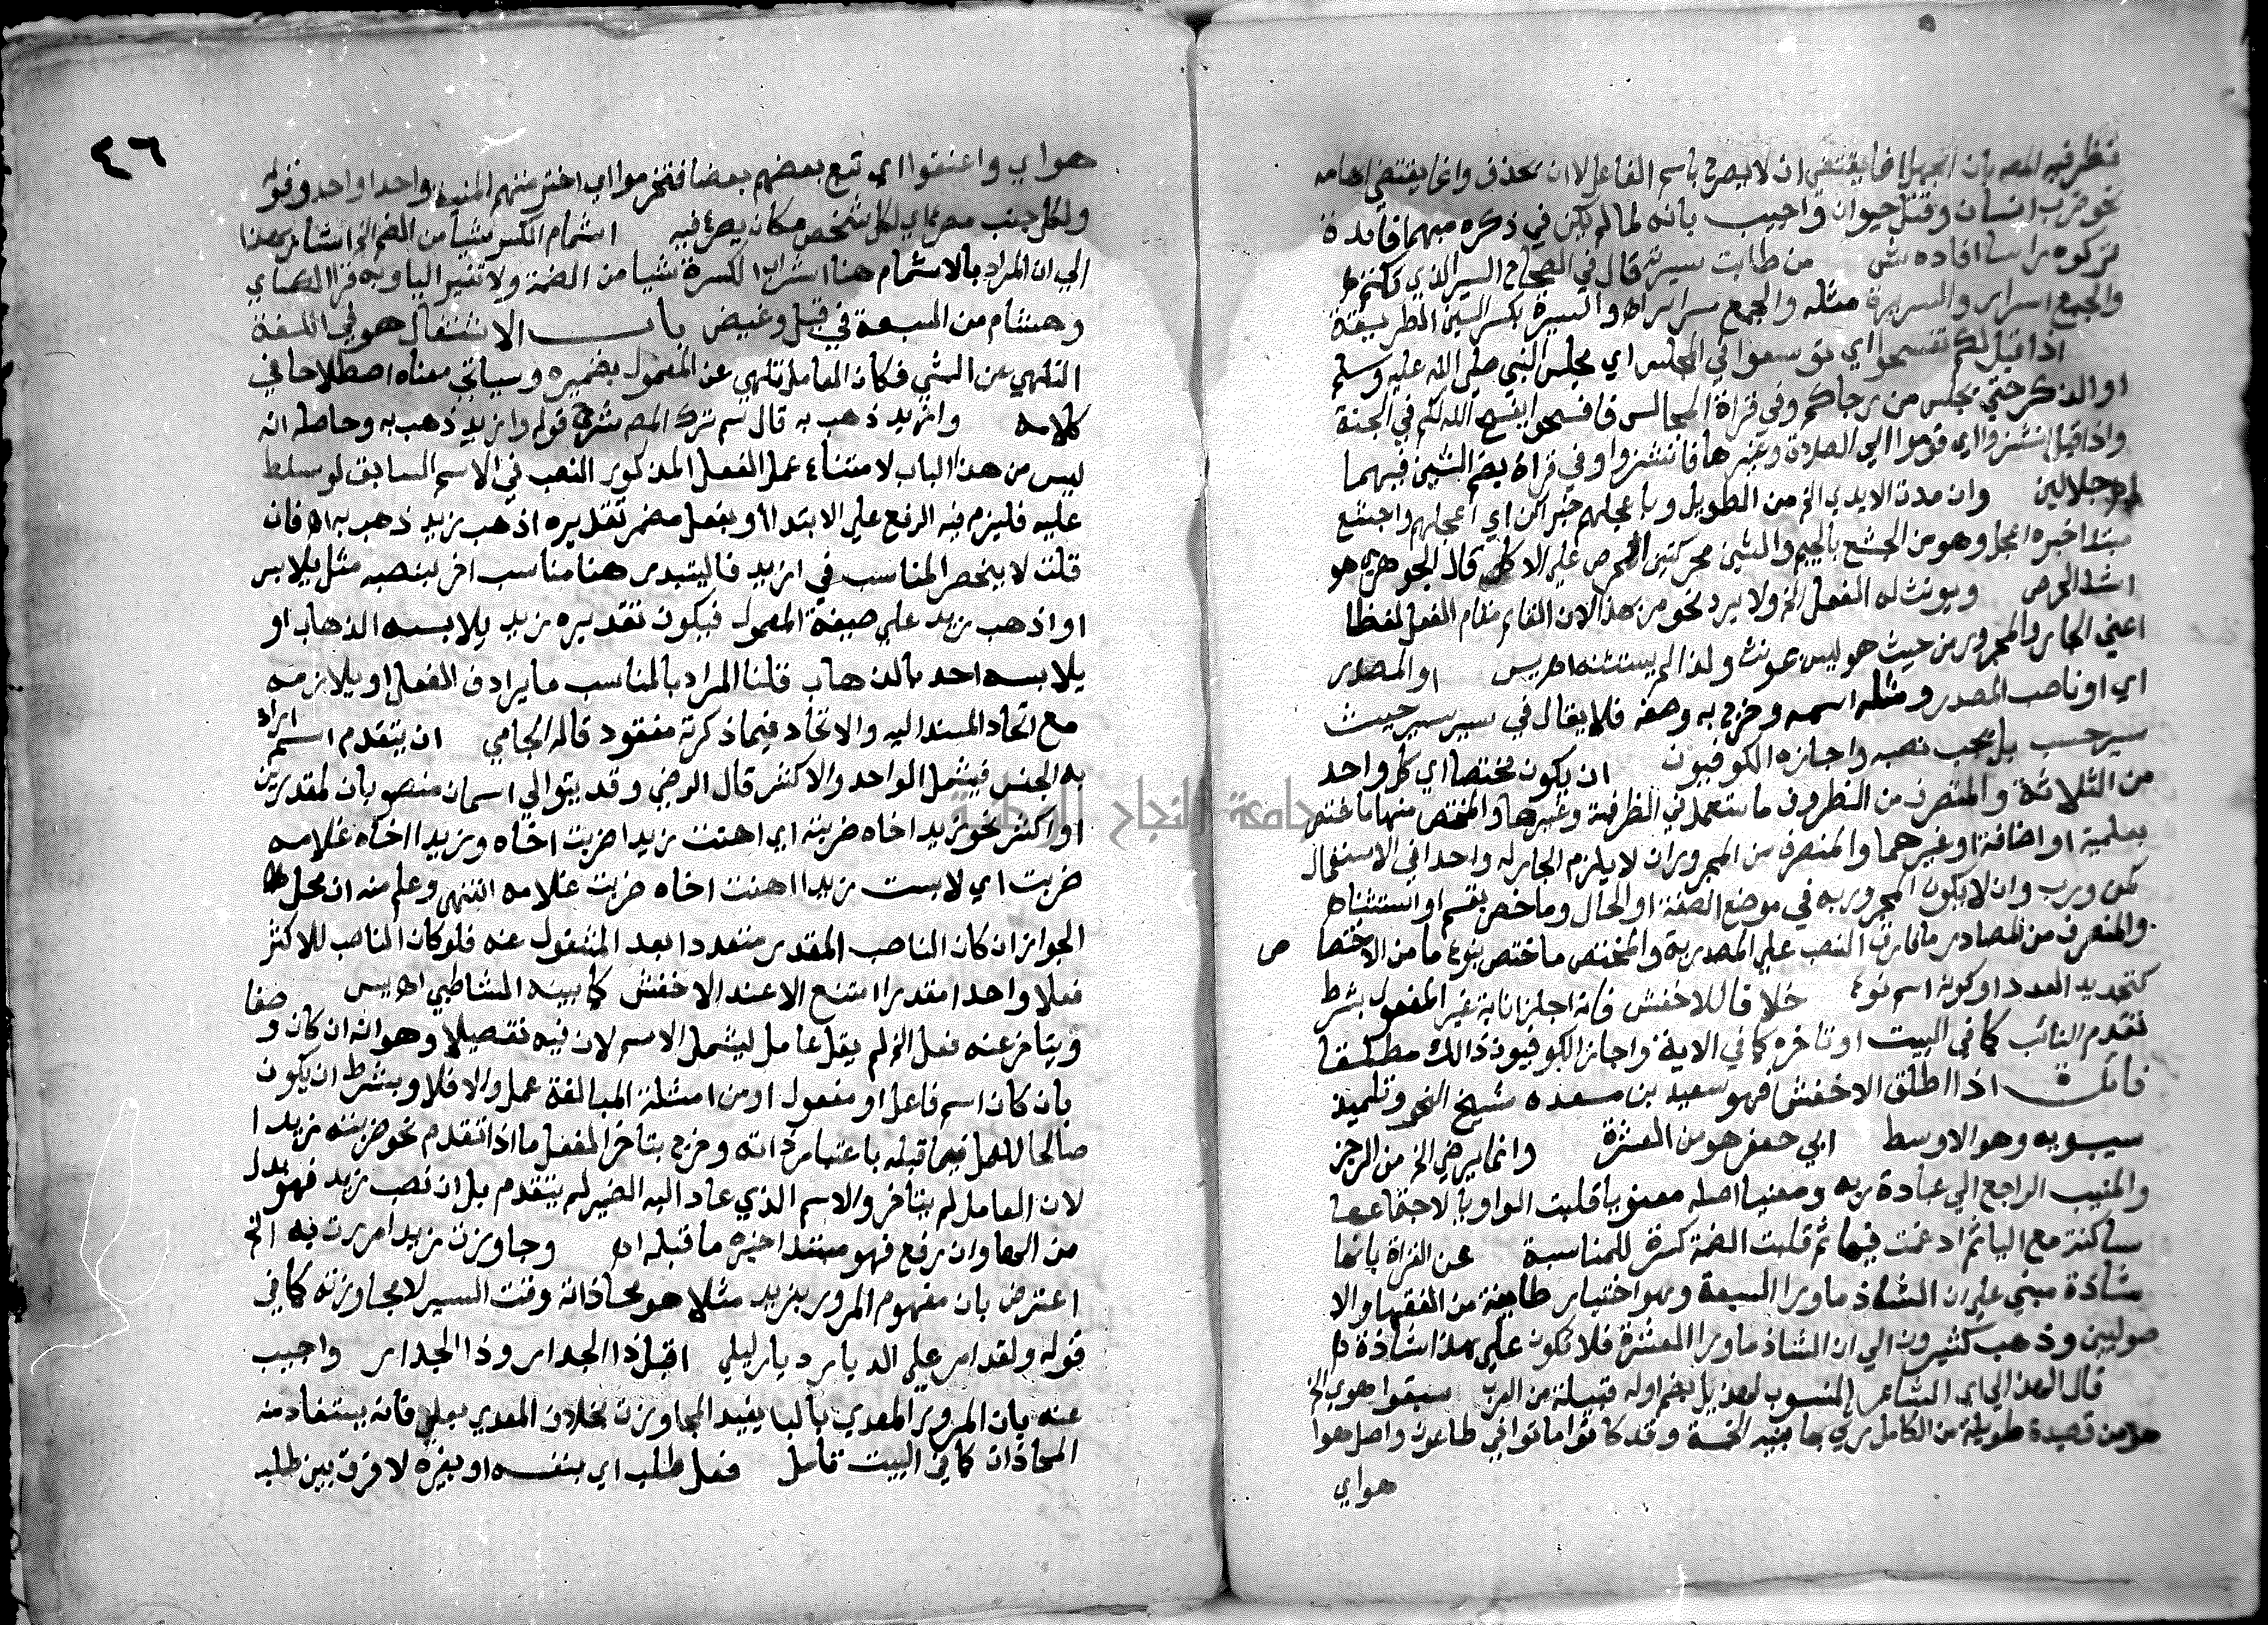 نظر فيه المصـ بان الجهل انما يقتضي ان لا يصرح باسم الفاعل لا ان يحذف وانما يقتضي ابهامه
نحو ضرب انسان وقتل حيوان واجيب بانه لما لم يكن في ذكره مبهما فائدة
تركوه راسا افاده ش من طابت سيرته قال في الصحاح السر الذي يكتم
والجمع اسرار والسريرة مثله والجمع سرائر اه والسيرة بكسر السين الطريقة
اذا قيل لكم تفسحوا اي توسعوا في المجلس اي مجلس النبي صلى الله عليه وسلم
او الذكر حتي يجلس من جاكم وفي قراة المجالس فافسحوا يفسح الله لكم في الجنة
واذا قيل انشزوا اي قوموا الي الصلاة وغيرها فانشزوا وفي قراة بضم الشين فيهما
اه جلالين وان مدت الايدي الخ من الطويل وباعجلهم خبر اكن اي اعجلهم واجشع
مبتدا خبره اعجل وهو من الجشع بالجيم والشين محركتين الحرص علي الاكل قال الجوهري هو
اشد الحرص ويونث له الفعل الخ ولا يرد نحو مر بهند لان القائم مقام الفعل لفظا
اعني الجار والمجرور من حيث هو ليس بمونث ولذا لم يستثنه اه يس او المصدر
اي او ناصب المصدر ومثله اسمه وخرج به وصفه فلا يقال في سير سير حيث
سير حسب بل يجب نصبه واجازه الكوفيون ان يكون مختصا اي كل واحد
من الثلاثة والمتصرف من الظروف ما ستعمل في الظرفية وغيرها والمختص منها ما اختص
بعلمية او اضافة او غيرهما والمتصرف من المجروران لا يلزم الجار له واحدا في الاستعمال
كمن ورب وان لا يكون المجرور به في موضع الصفة او الحال وما خص بقسم او استثناء
والمتصرف من المصادر ما فارق النصب علي المصدرية والمختص ما ختص بنوع ما من الاختصا ص
كتحديد العدد او كونه اسم نوع خلافا للاخفش فانه اجاز انابة غير المفعول بشرط
تقدم النائب كما في البيت او تاخره كما في الاية واجاز الكوفيون ذالك مطلقا
فائدة اذا اطلق الاخفش فهو سعيد بن مسعده شيخ النحو وتلميذ
سيبويه وهو الاوسط ابي جعفر هو من العشرة وانما يرضي الخ من الرجز
والمنيب الراجع الي عبادة ربه ومعنيا اصله معنويا قلبت الواو يا لاجتماعها
ساكنة مع اليا ثم ادغمت فيها ثم قلبت الضمة كسرة للمناسبة عن القراة بانها
شاذة مبني علي ان الشاذ ما ورا السبعة وهو اختيار طايفة من الفقها والا
صوليين وذهب كثيرون الي ان الشاذ ما ورا العشرة فلا تكون علي هذا شاذة
قال الهذلي اي الشاعر المنسوب لهذيل بضم اوله قبيلة من العرب سبقوا هوي الخ
هو من قصيدة طويلة من الكامل يرثي بها بنيه الخمسة وقد كانوا ماتوا في طاعون واصل هوا
هواي
٤٦
هواي واعنقوا اي تبع بعضهم بعضا فتخرموا اي اخترمتهم المنية واحدا واحد وقوله
ولكل جنب مصرع اي لكل شخص مكان يصرع فيه اشمام الكسر شيا من الضم الخ اشار بهذا
الي ان المراد بالاشمام هنا اشراب الكسرة شيا من الضمة ولا تغير اليا وبه قرا الكساي
وهشام من السبعة في قيل وغيض باب الاشتغال هو في اللغة
التلهي عن الشي فكان العامل تلهي عن المعمول بضميره وسياتي معناه اصطلاحا في
كلامه وازيد ذهب به قال سم ترك المصـ شرح قوله وازيد ذهب به وحاصله انه
ليس من هذا الباب لامتناع عمل الفعل المذكور النصب في الاسم السابق لو سلط
عليه فليزم فيه الرفع علي الابتدا او بفعل مضمر تقديره اذهب زيد ذهب به اه فان
قلت لا ينحصر المناسب في ازيد فاليتبدر هنا مناسب اخر ينصبه مثل يلابس
او اذهب زيد علي صيغة المعمول فيكون تقديره زيد يلابسه الذهاب او
يلابسه احد بالذهاب قلنا المراد بالمناسب ما يرادف الفعل او يلازمه
مع اتحاد المسند اليه والاتحاد فيما ذكرته مفقود قاله الجامي ان يتقدم اسم اراد
به الجنس فيشمل الواحد والاكثر قال الرضي وقد يتوالي اسمان منصوبان لمقدرين
او اكثر نحو زيدا اخاه ضربته اي اهنت زيدا ضربت اخاه وزيدا اخاه غلامه
ضربت اي لابست زيدا اهنت اخاه ضربت غلامه انتهى وعلم منه ان محل
الجواز ان كان الناصب المقدر متعددا بعد المشغول عنه فلو كان الناصب للاكثر
فعلا واحدا مقدرا امتنع الا عند الاخفش كما بينه الشاطبي اه يس
ويتاخر عنه فعل الخ لم يقل عامل ليشمل الاسم لان فيه تفصيلا وهو انه ان كان وصفا
بان كان اسم فاعل او مفعول او من امثلة المبالغة عمل والا فلا ويشرط ان يكون
صالحا للعمل فيما قبله باعتبار ذاته وخرج بتاخر الفعل ما اذا تقدم نحو ضربته زيدا
لان العامل لم يتاخر والاسم الذي عاد اليه الضمير لم يتقدم بل ان نصب زيد فهو بدل
من الها وان رفع فهو مبتدا خبره ما قبله اه وجاوزت زيدا مررت به الخ
اعترض بان مفهوم المرور بزيد مثلا هو محاذاته وقت السير لا مجاوزته كما في
قوله ولقد امر علي الديار ديار ليلي اقبل ذا الجدار وذا الجدار واجيب
عنه بان المرور المعدي بالبا يفيد المجاوزت بخلاف المعدي بعلي فانه يستفاد منه
المحاذات كما في البيت تامل فعل طلب اي بنفسه او بغيره لا فرق بين طلب